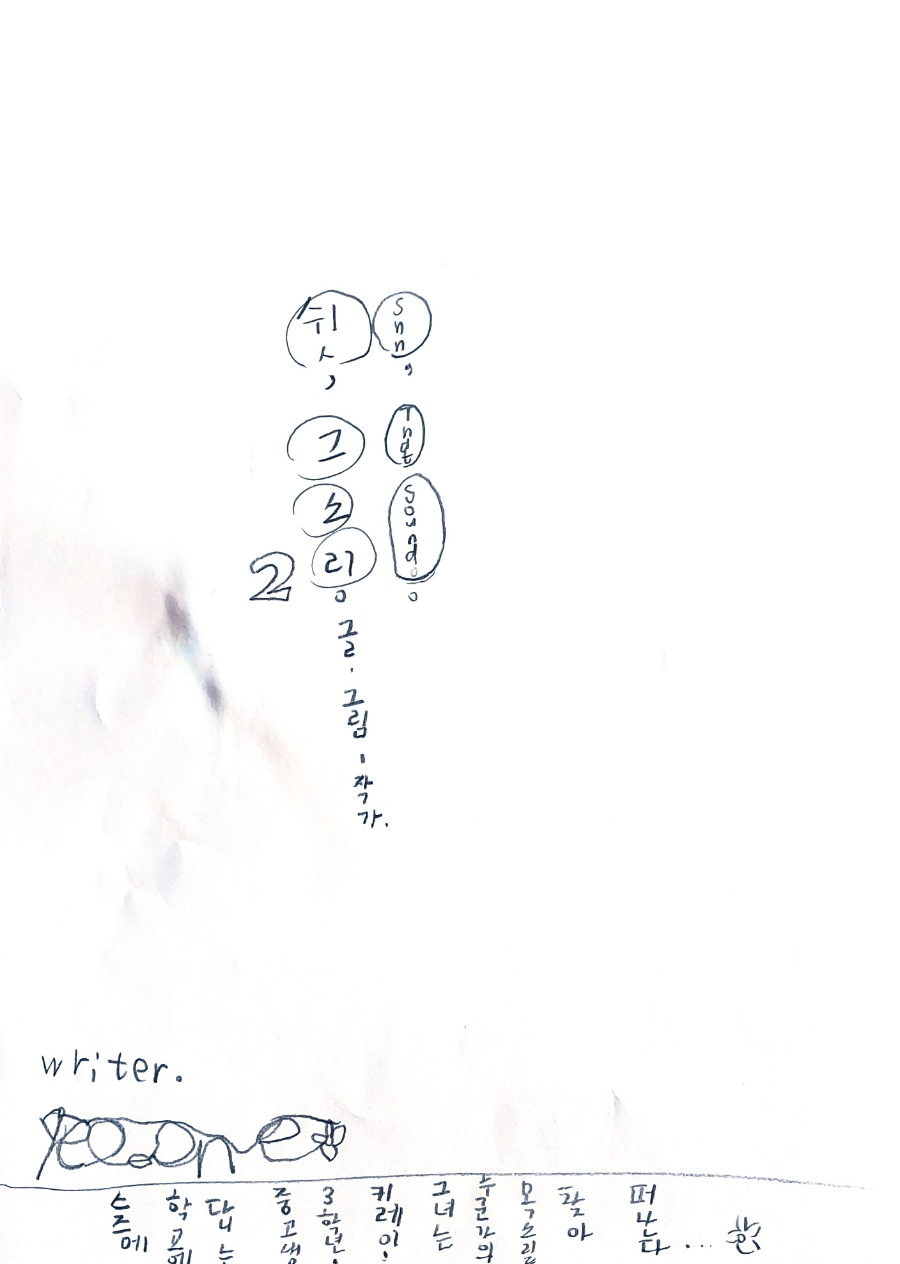 쉿,
그
소
리
2
Snn,
Tndt
sound
글·그림-작가.
writer.
스즈메
학교에
다니는
중고생
3학년!
키레이!
그녀는
누군가의
목소릴
찾아
떠난다...